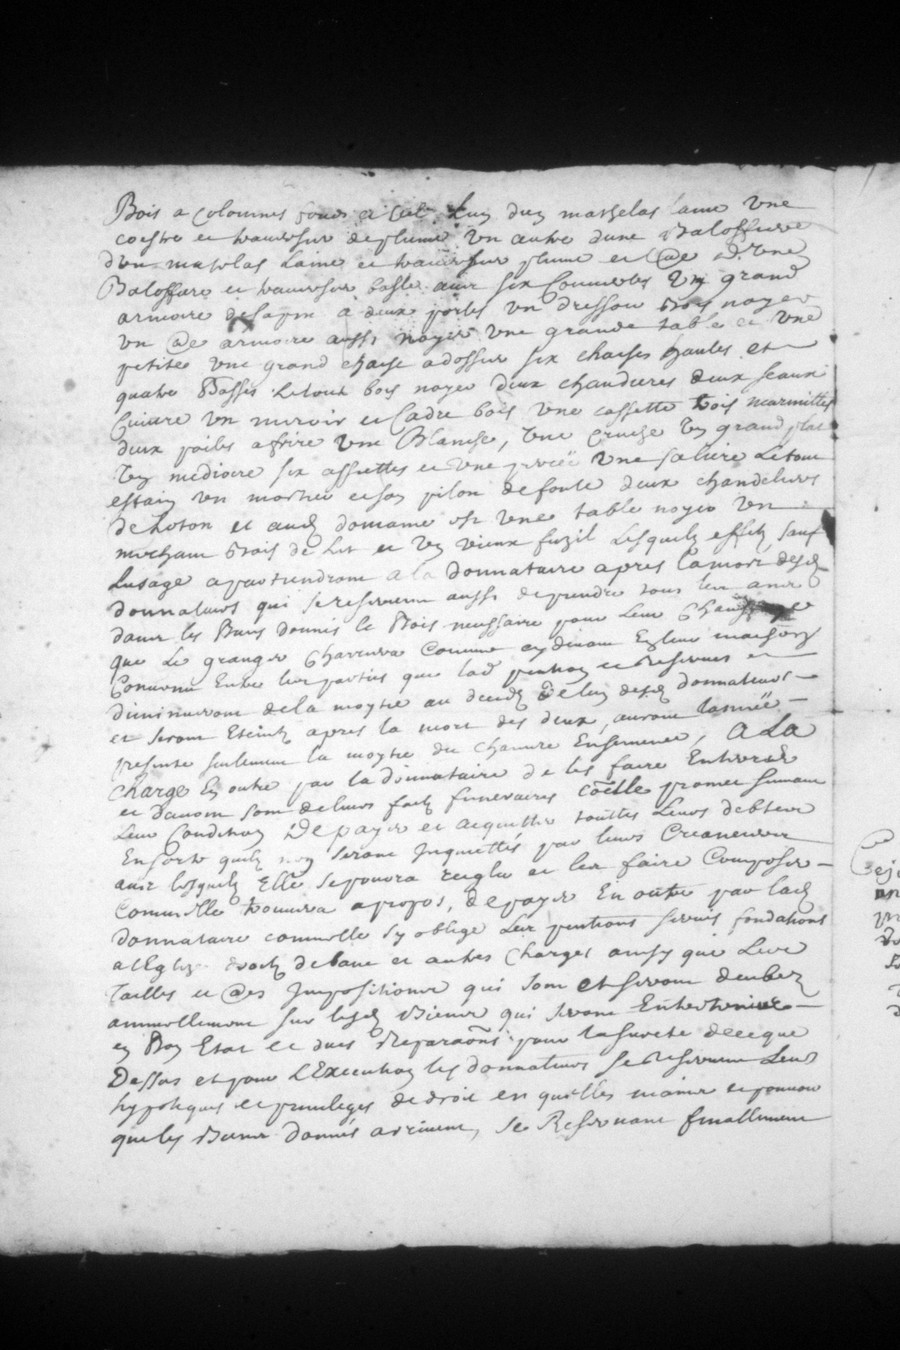 Bois a Colonnes fonds et Ciel Lun dun matzelas laine une
coestre et traversier de plume un autre dune Baloffiere
dun matelas Laine et traversier plume et Cae ad. une
Baloffiere et traversier basle avec six Couvertes Un grand
armoire de sapin a deux portes un dressoir bois noyer
un Cae armoire aussi noyer une grande table et une
petite une grand chaise a dossier six chaises haultes et
quatre Basses Letout bois noyer deux chaudieres deux seaux
Cuivre un miroir et Cadre bois une cassette trois marmittes
deux poiles a frire une Blanche, une cruche Un grand plat
Un mediocre six assiettes et une une saliere Letout
estain un mortier et son pilon de fonte deux chandeliers
de Loton et aud domaine est une table noyer un
mechant bois de Lit et un vieux fuzil Lesquels effets sauf
Lusage apartiendront a la donnataire apres la mort desd
donnateurs qui se reservent aussi de prendre tous les ans
dans les Biens donnés le Bois necessaire pour Leur Chauffage
que Le granger Charriera Comme cy devant En leur maison
Convenu Entre les parties que lad pention et Reserves
diminueront de la moytie au deces de lun desd donnateurs
et seront Eteints apres la mort des deux, auront lannéë
presente seulement la moytie du chanvre Ensemencé, A La
Charge En outre par la donnataire de les faire Enterrer
et davoir soin de leurs faits funeraires Coelle promet suivant
Leur Condition De payer et acquitter touttes Leurs debtes
Ensorte quils nen seront Inquiettés par leurs Creanciers
avec lesquels Elle se pourra regler et les faire Composer
Comm'Elle trouvera apropos, de payer En outre par lad
donnataire comm'elle sy oblige Les pentions servis fondations
a l'Eglise droits de lauc et autres Charges ainsy que Les
Tailles et Caes Impositions qui sont et seront deubes
annuellement sur lesd Biens qui seront Entretenus
en Bon Etat et dues Reparaons pour la surete de ce que
Dessus et pour L'Execution les donnateurs se Reservent Leurs
hypoteques et privileges de droit en quelles mains et pouvoir
que les Biens donnés arrivent, se Reservant finallement